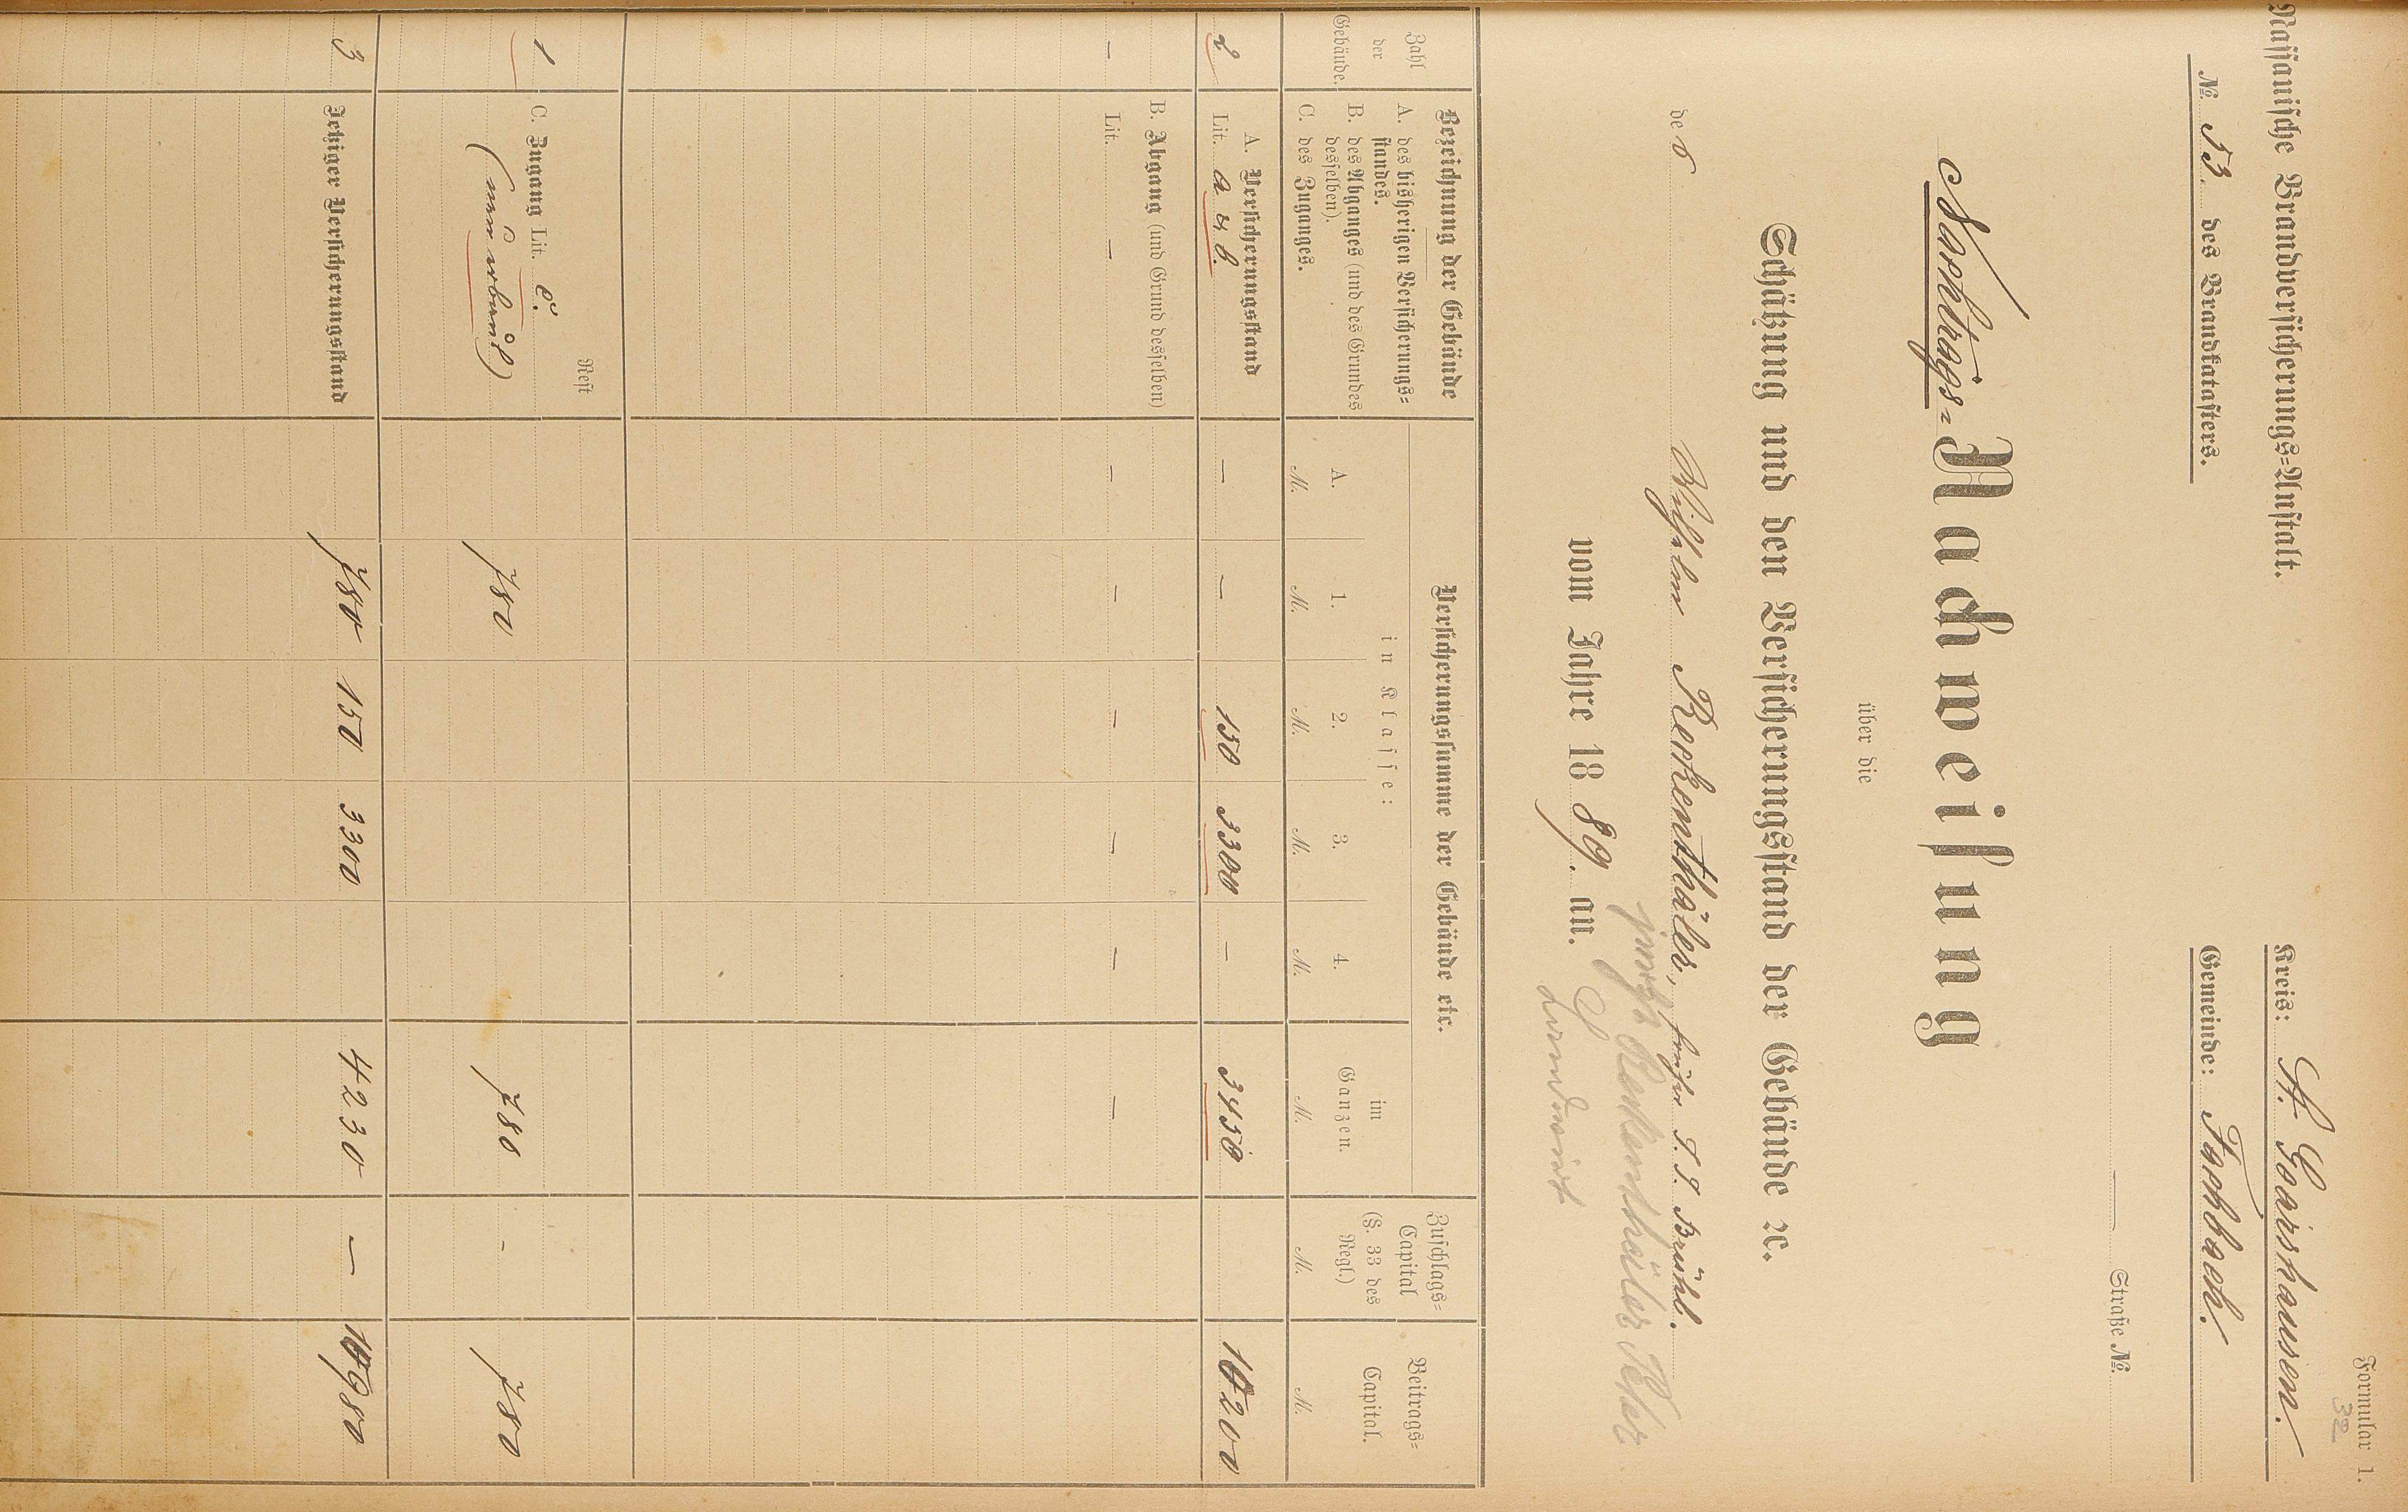 Formular 1.
32
Nassauische Brandversicherungs=Anstalt.
Kreis: St. Goarshausen.
№. 53. des Brandkatasters.
Gemeinde: Fachbach.
— Straße №.
Nachtrags=Nachweisung
über die
Schätzung und den Versicherungsstand der Gebäude ꝛc.
des Wilhelm Reckenthäler, früher J. J. Brühl.
jetzt Reckenthäler Peter
Landwirt
vom Jahre 1889. an.
Zahl der Gebäude.
Bezeichnung der Gebäude
A. des bisherigen Versicherungs=
standes.
B. des Abganges (und des Grundes
desselben).
C. des Zuganges.
Versicherungssumme der Gebäude etc.
in Klasse:
A. 1. 2. 3. 4.
M. M. M. M. M.
im Ganzen.
M.
Zuschlags=
Capital
(§. 33 des
Regl.)
M.
Beitrags=
Capital.
M.
A. Versicherungsstand
2 Lit. a u b. — — 150 3300 — 3450 10200
B. Abgang (und Grund desselben)
— Lit. — — — — — — —
Rest
1 C. Zugang Lit. c.
(neu erbaut) 780 780 - 780
3 Jetziger Versicherungsstand 780 150 3300 4230 — 10980